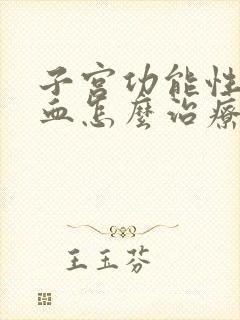 子宫功能性
血怎麼治療
王玉芬